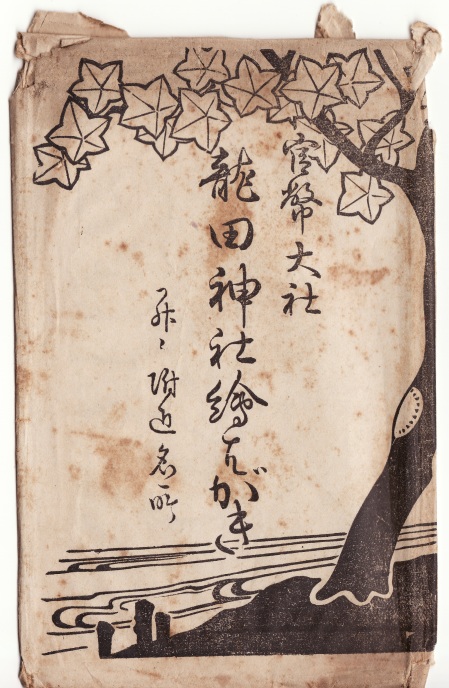 官幣大社
龍田神社繪はがき
附近名所